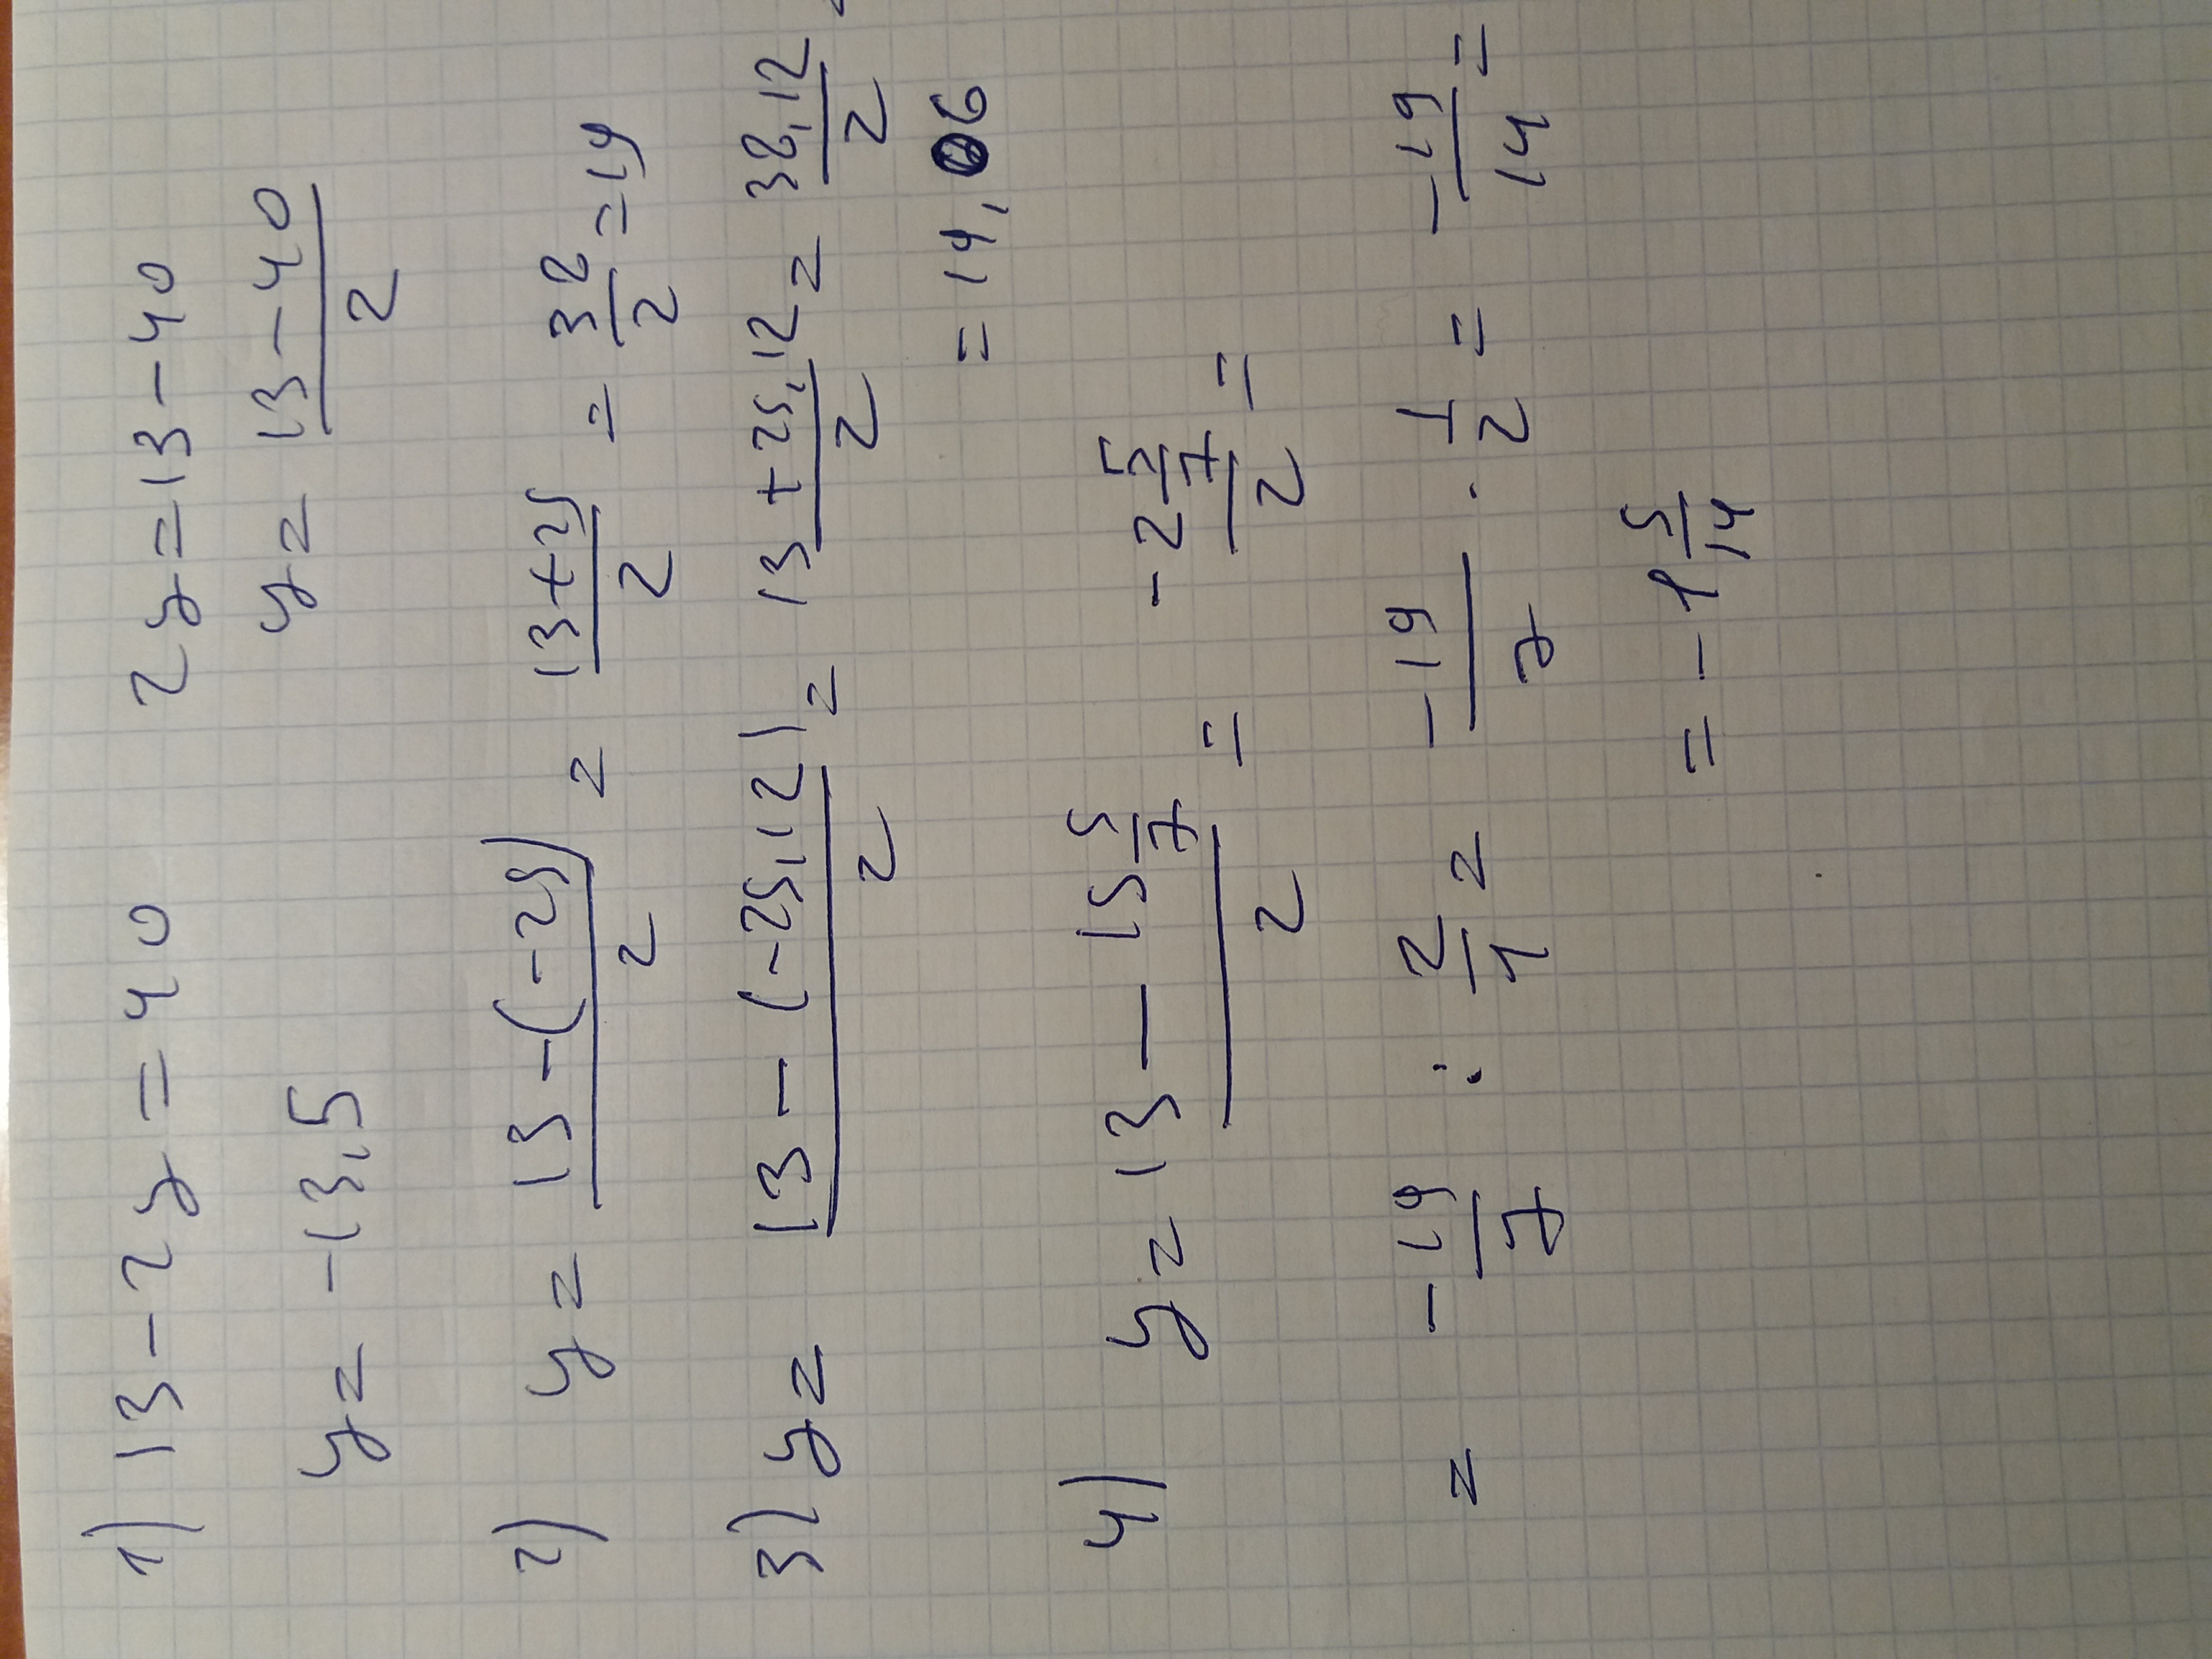 1) 13 - 2y = 40 2y = 13 - 40
y = -13,5 y = \frac{13 - 40}{2}
2) y = \frac{13 - (-25)}{2} = \frac{13 + 25}{2} = \frac{38}{2} = 19
3) y = \frac{13 - (-25,12)}{2} = \frac{13 + 25,12}{2} = \frac{38,12}{2} =
= 19,06
4) y = \frac{13 - 15\frac{5}{7}}{2} = \frac{-2\frac{5}{7}}{2} =
= -\frac{19}{7} : \frac{2}{1} = -\frac{19}{7} \cdot \frac{1}{2} = -\frac{19}{14} =
= -1\frac{5}{14}